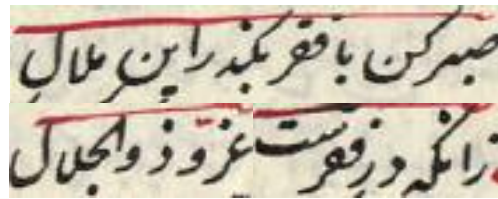 صبر کن با فقر بگذر این ملال
زانکه در فقرست عز و ذوالجلال